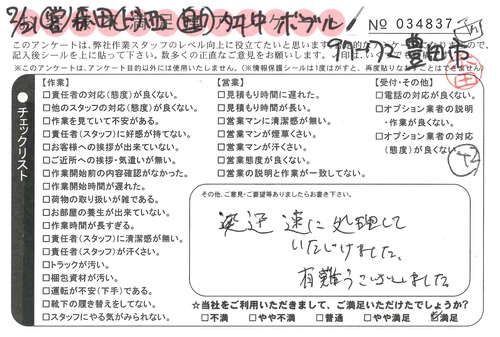 No 034837
このアンケートは、弊社作業スタッフのレベル向上に役立てたいと思います。
記入後シールを上に貼って下さい。数多くの正直なご意見をお願いします。
※このアンケートは、アンケート目的以外には使用しません。(※情報保護シールは1度はがすと、再度貼りなおすことはできません。)
チェックリスト
【作業】
□責任者の対応(態度)が良くない。
□他のスタッフの対応(態度)が良くない。
□作業を見ていて不安がある。
□責任者(スタッフ)に好感が持てない。
□お客様への挨拶が出来ていない。
□ご近所への挨拶・気遣いが無い。
□作業開始前の内容確認がなかった。
□作業開始時間が遅れた。
□荷物の取り扱いが雑である。
□お部屋の養生が出来ていない。
□作業時間が長すぎる。
□責任者(スタッフ)に清潔感が無い。
□責任者(スタッフ)が汗くさい。
□トラックが汚い。
□梱包資材が汚い。
□運転が不安(下手)である。
□靴下の履き替えをしてない。
□スタッフにやる気がみられない。
【営業】
□見積もり時間に遅れた。
□見積もり時間が長い。
□営業マンに清潔感が無い。
□営業マンが煙草くさい。
□営業マンが汗くさい。
□営業態度が良くない。
□営業の説明と作業が一致してない。
【受付・その他】
□電話の対応が良くない。
□オプション業者の説明
・作業が良くない。
□オプション業者の対応
(態度)が良くない。
その他、ご意見・ご要望等ありましたらお書き下さい。
迅速に処理して
いただけました。
有難うございました
☆当社をご利用いただきまして、ご満足いただけたでしょうか?
□不満 □やや不満 □普通 □やや満足 ☑満足